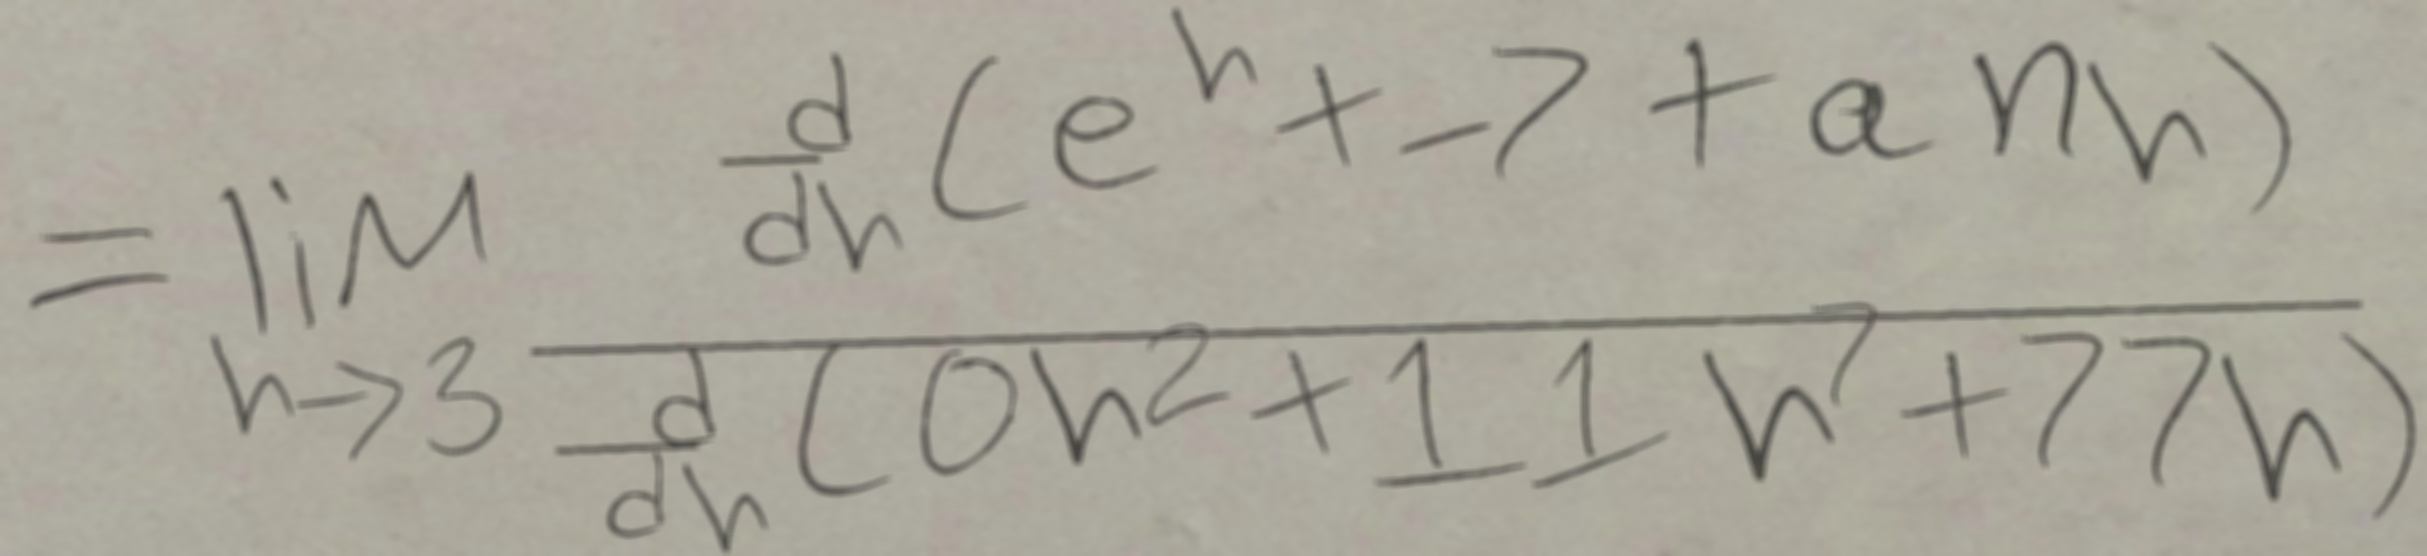 = lim_{h→3} \frac{\frac{d}{dh}(e^h + -7 + an h)}{\frac{d}{dh}(0h^2 + 11h^7 + 77h)}